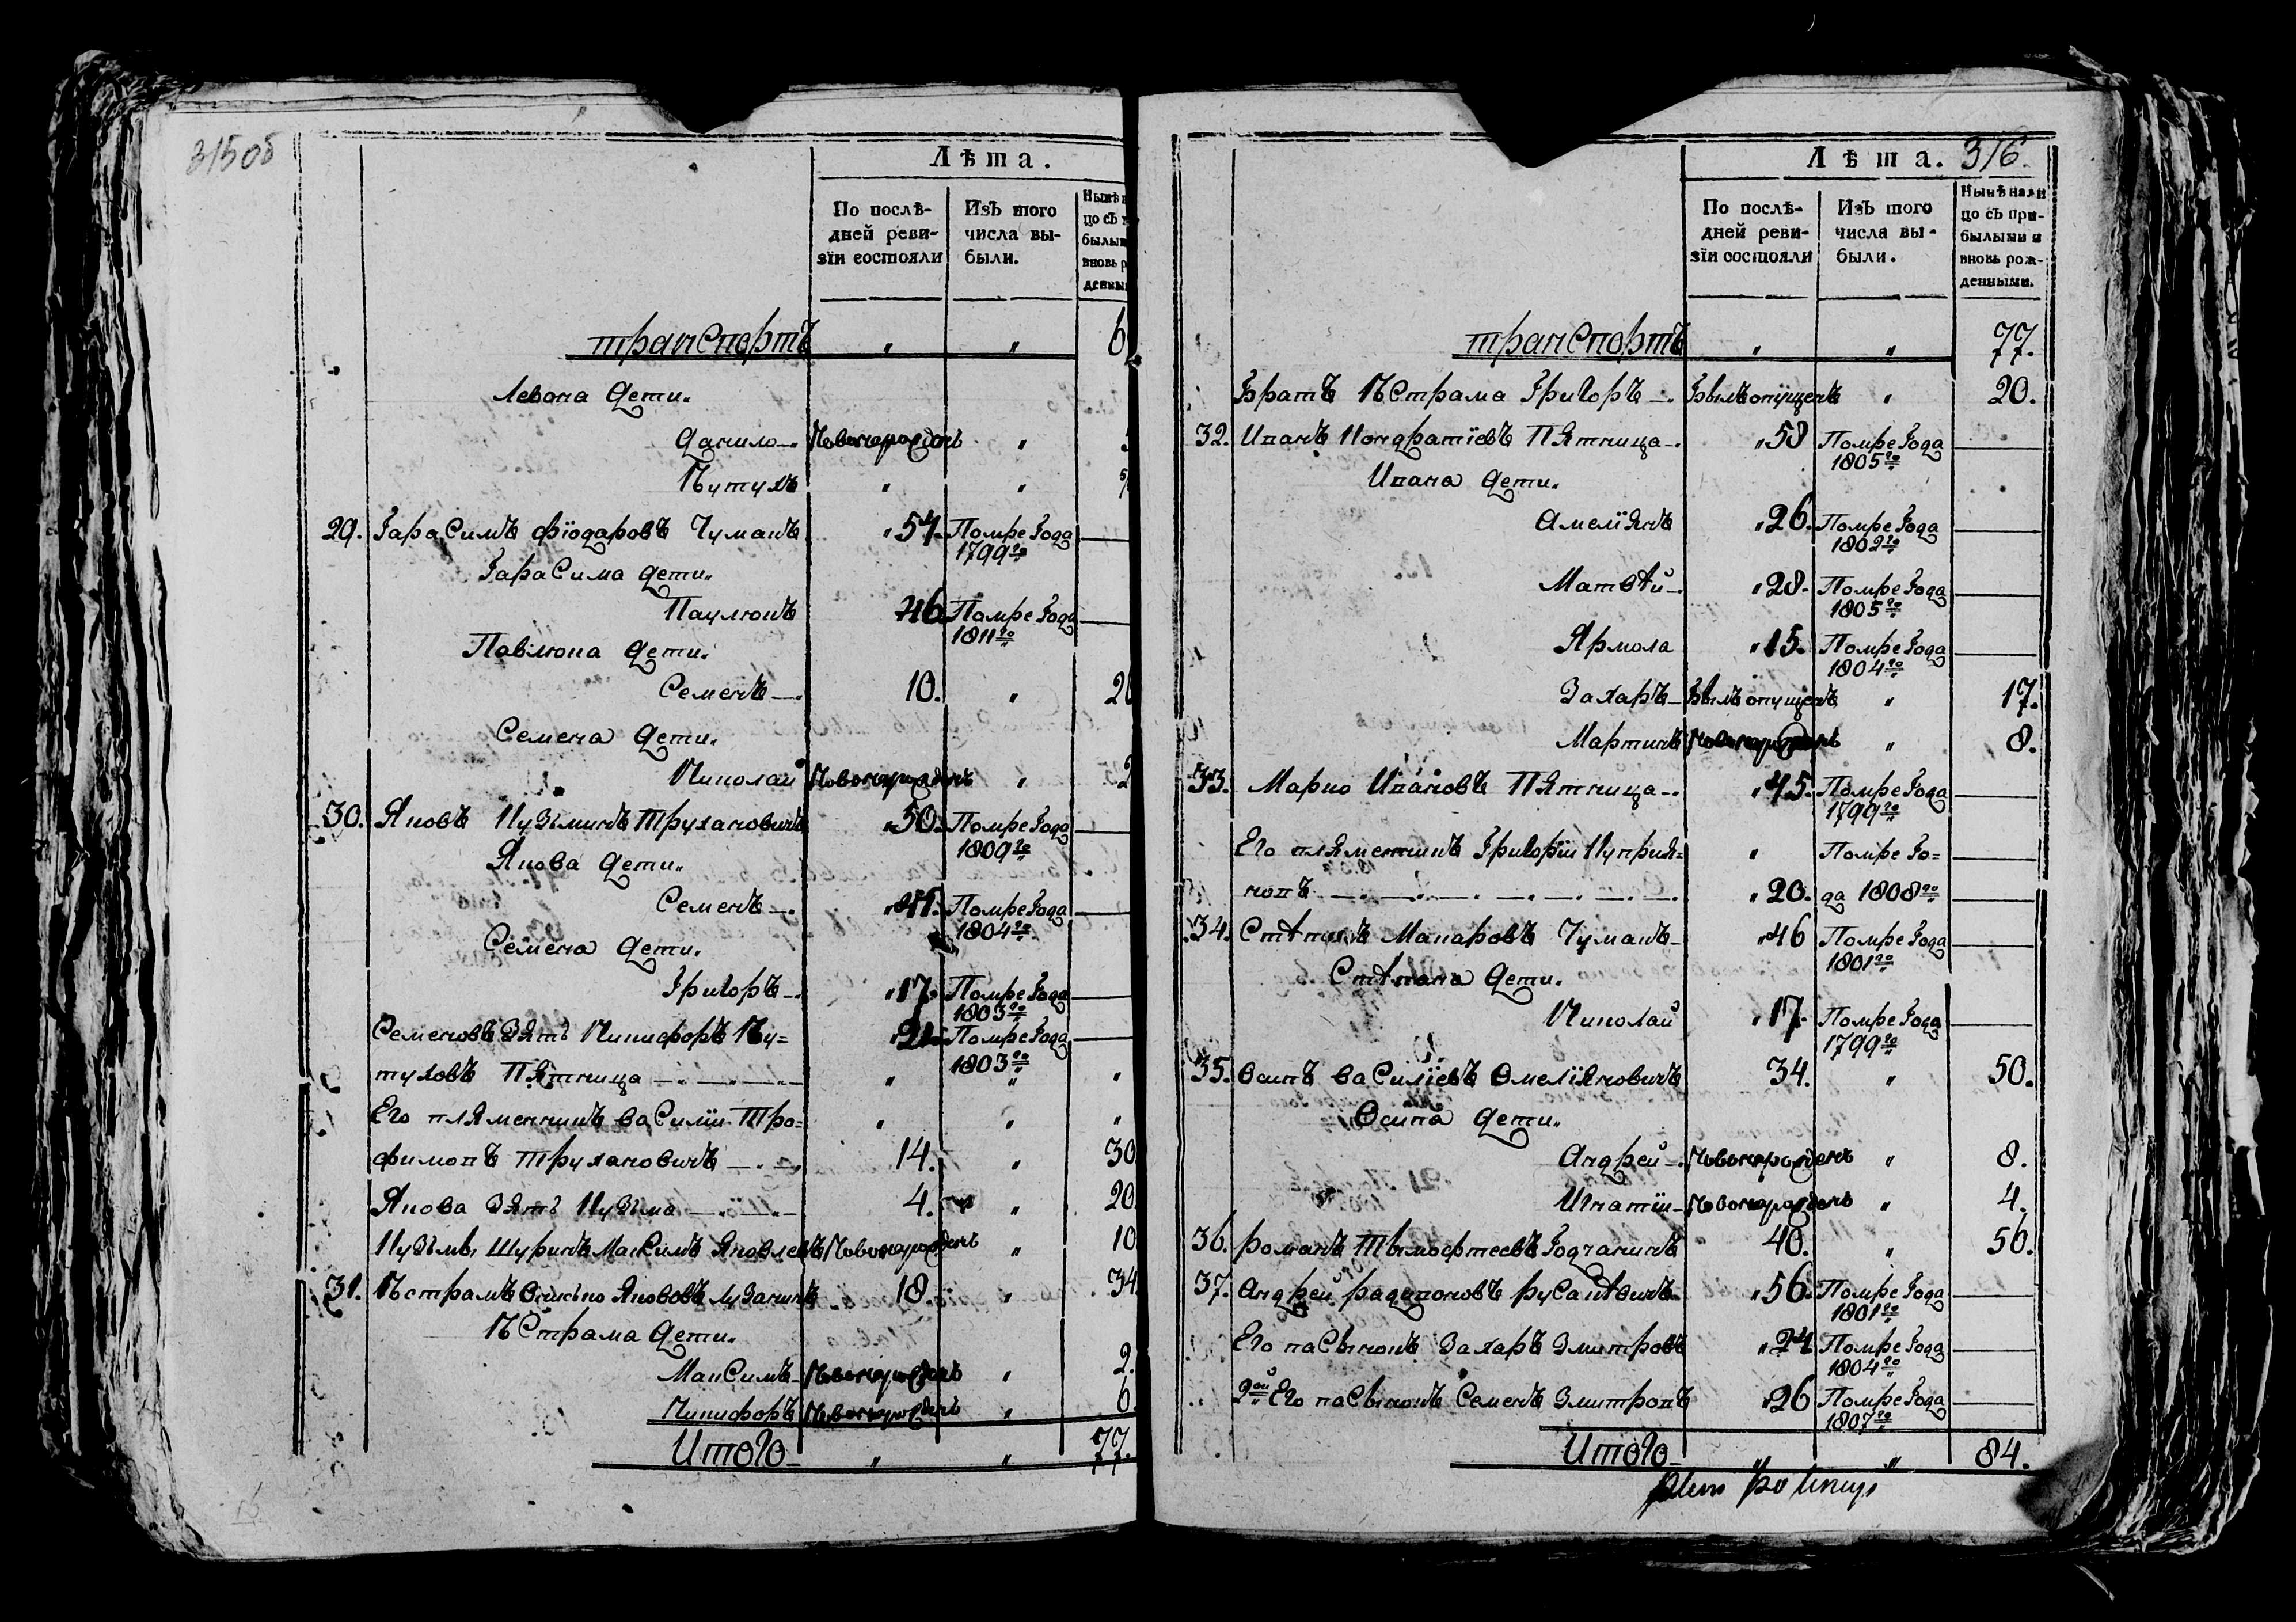 315об
Лѣта.
По послѣ-
дней реви-
зїи состояли
Изъ того
числа вы-
были.
Нынѣ
цо съ
былы
вновь р
денны
транспортъ „ „ 6
Левона дети.
данило Новонарожденъ „
„ „
29. Гарасимъ фїодаровъ Чумакъ „57. Помре Года
1799го
Гарасима дети.
Паулюкъ 46 Помре Года
1811го
Павлюка дети.
Семенъ 10. „ 2
Семена дети.
Николай Новонарожденъ „ 2
30. Яковъ Кузьминъ Трухановичъ „50. Помре Года
1809го
Якова дети.
Семенъ Помре Года
1804го
Семена дети.
Григоръ „17. Помре Года
1803го
Семеновъ Зять Никифоръ „21. Помре Года
1803го
Пятница „ „ „
Его пляменникъ василїи Тро= „ „ „
фимовъ Трухановичъ 14. „ 30
Якова Зять Кузьма 4. „ 20
Кузьмы Шуринъ Максимъ Яковлевъ Новонарожденъ „ 10
31. Якововъ 18. „ 34
дети.
Максимъ Новонарожденъ „ 2.
Никифоръ Новонарожденъ „ 6.
Итого „ „ 77.
Лѣта. 316.
По послѣ-
дней реви-
зїи состояли
Изъ того
числа вы-
были.
Нынѣ нали
цо съ при-
былыми и
вновь рож-
денными.
транспортъ „ „ 77.
Братъ Григоръ Былъ опущенъ „ 20.
32. Иванъ Кондратїевъ Пятница „58 Помре Года
1805го
Ивана дети.
Амелїянъ „26. Помре Года
1802го
Матвѣй „28. Помре Года
1805го
Ярмола „15. Помре Года
1804го
Захаръ Былъ опущенъ „ 17.
Мартинъ Новонарожденъ „ 8.
33. Марко Ивановъ Пятница „45. Помре Года
1799го
Его пляменникъ Григорїи Куприя= „ Помре Го=
новъ „20. да 1808го
34. Стѣпанъ Макаровъ Чумакъ „46 Помре Года
1801го
Стѣпана дети.
Николай „17. Помре Года
1799го
35. Осипъ василїевъ Омелїяновичъ 34. „ 50.
Осипа дети.
Андрей Новонарожденъ „ 8.
Игнатїи Новонарожденъ „ 4.
36. романъ Тымофтеевъ Годчанинъ 40. „ 56.
37. Андрей радивоновъ русаѣвичъ „56. Помре Года
1801го
Его пасынокъ Захаръ Змитровъ „24 Помре Года
1804го
2ой Его пасынокъ Семенъ Змитровъ „26 Помре Года
1807го
Итого „ „ 84.